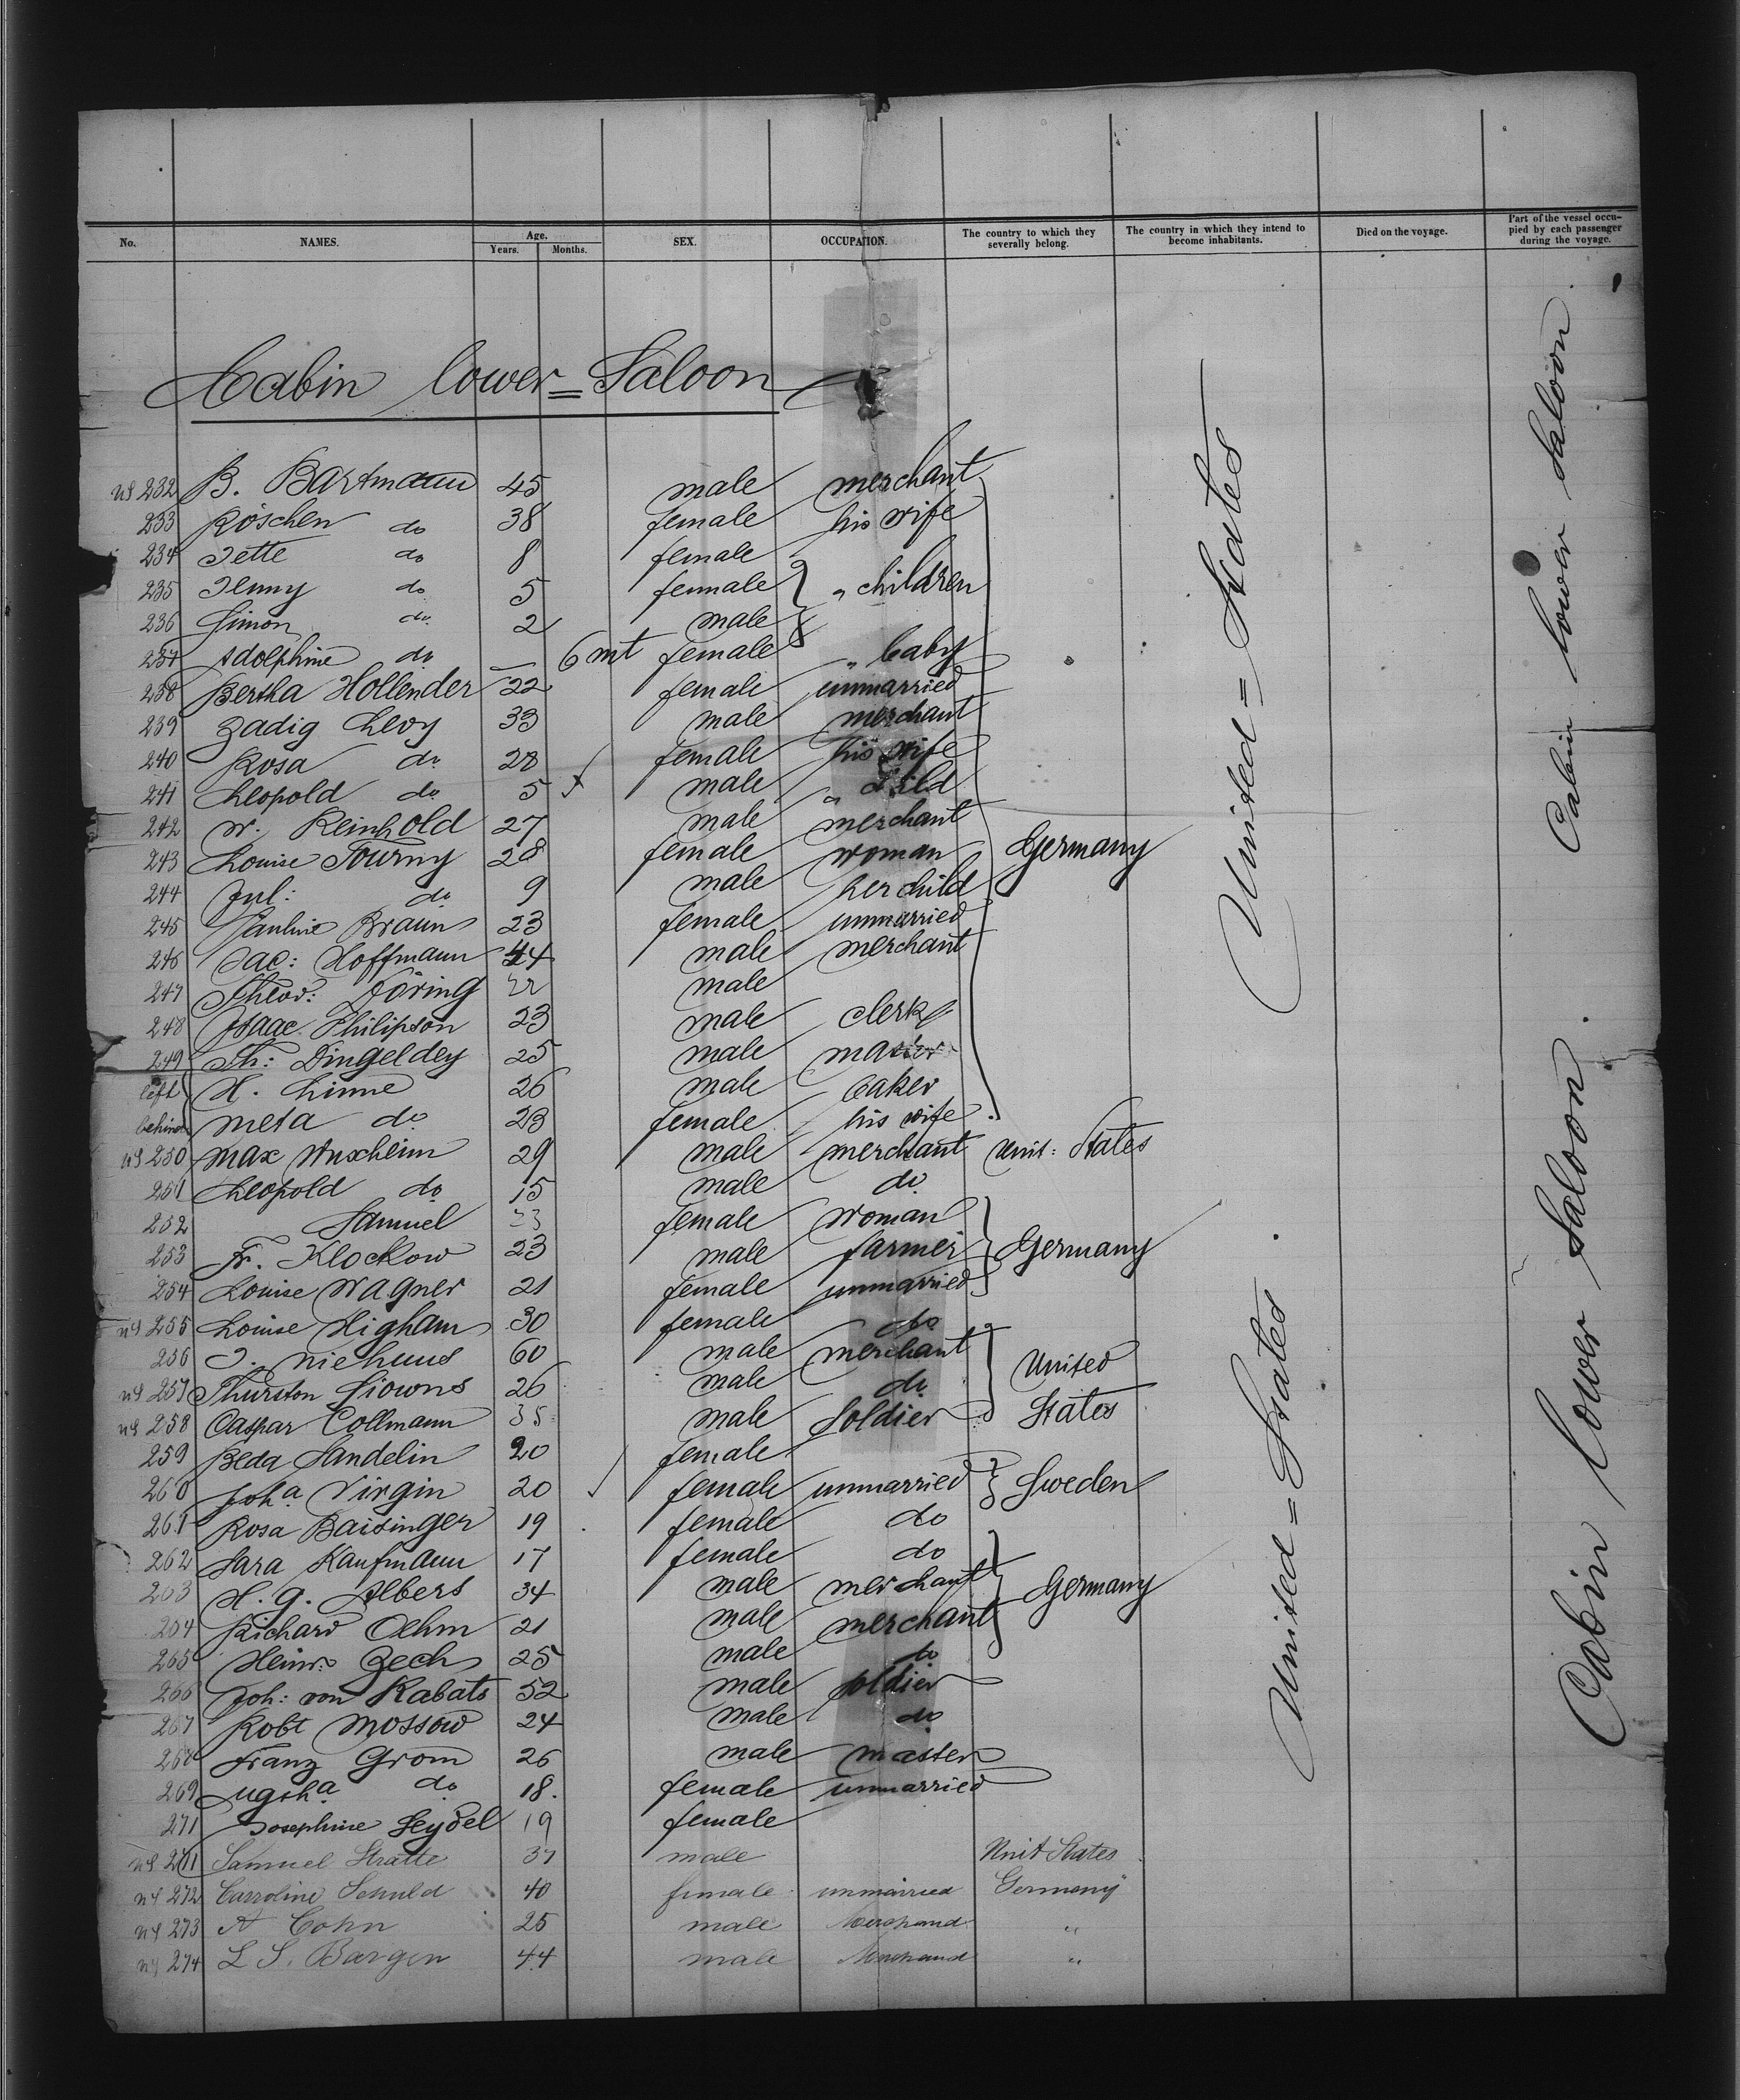 No. NAMES. Age. Years. Months. SEX. OCCUPATION. The country to which they severally belong. The country in which they intend to become inhabitants. Died on the voyage. Part of the vessel occupied by each passenger during the voyage.
Cabin lower = Saloon
232 B. Bartmann 45 male merchant
233 Röschen do 38 female his wife
234 Jette do 8 female
235 Jenny do 5 female } " children
236 Simon do 2 male
237 Adolphine do — 6 mt female " baby
238 Bertha Hollender 22 female unmarried
239 Zadig Levy 33 male merchant
240 Rosa do 28 female his wife
241 Leopold do 5 male " child
242 W. Reinhold 27 male merchant
243 Louise Tourny 28 female woman Germany
244 Jul: do 9 male her child
245 Pauline Braun 23 female unmarried
246 Jac: Hoffmann 44 male merchant
247 Theod: Döring 22 male
248 Isaac Philipson 23 male clerk
249 Th: Dingeldey 25 male
left H. Linne 26 male baker
behind Meta do 23 female his wife
250 Max Wuxheim 29 male merchant Unit: States
251 Leopold do 15 male do
252 Samuel 23 female woman
253 Fr. Klockow 23 male farmer Germany
254 Louise Wagner 21 female unmarried
255 Louise Higham 30 female do
256 J. Niehuus 60 male merchant United
257 Thurston 26 male do
258 Caspar Collmann 35 male Soldier States
259 Beda Sandelin 20 female
260 Joha Virgin 20 female unmarried Sweden
261 Rosa Baisinger 19 female do
262 Sara Kaufmann 17 female do
263 H. G. Albers 34 male merchant Germany
264 Richard Oehm 21 male merchant
265 Heinr: Zech 25 male do
266 Joh: von Kabats 52 male soldier
267 Robt Mossow 24 male do
268 Franz Grom 26 male master
269 do 18. female unmarried
271 Josephine Seydel 19 female
271 Samuel Stratte 37 male Unit States
272 Carroline Schuld 40 female unmarried Germany
273 A Cohn 25 male Merchand "
274 L S. Bargen 44 male Merchand "
United = States
United = States
Cabin lower Saloon.
Cabin lower Saloon.